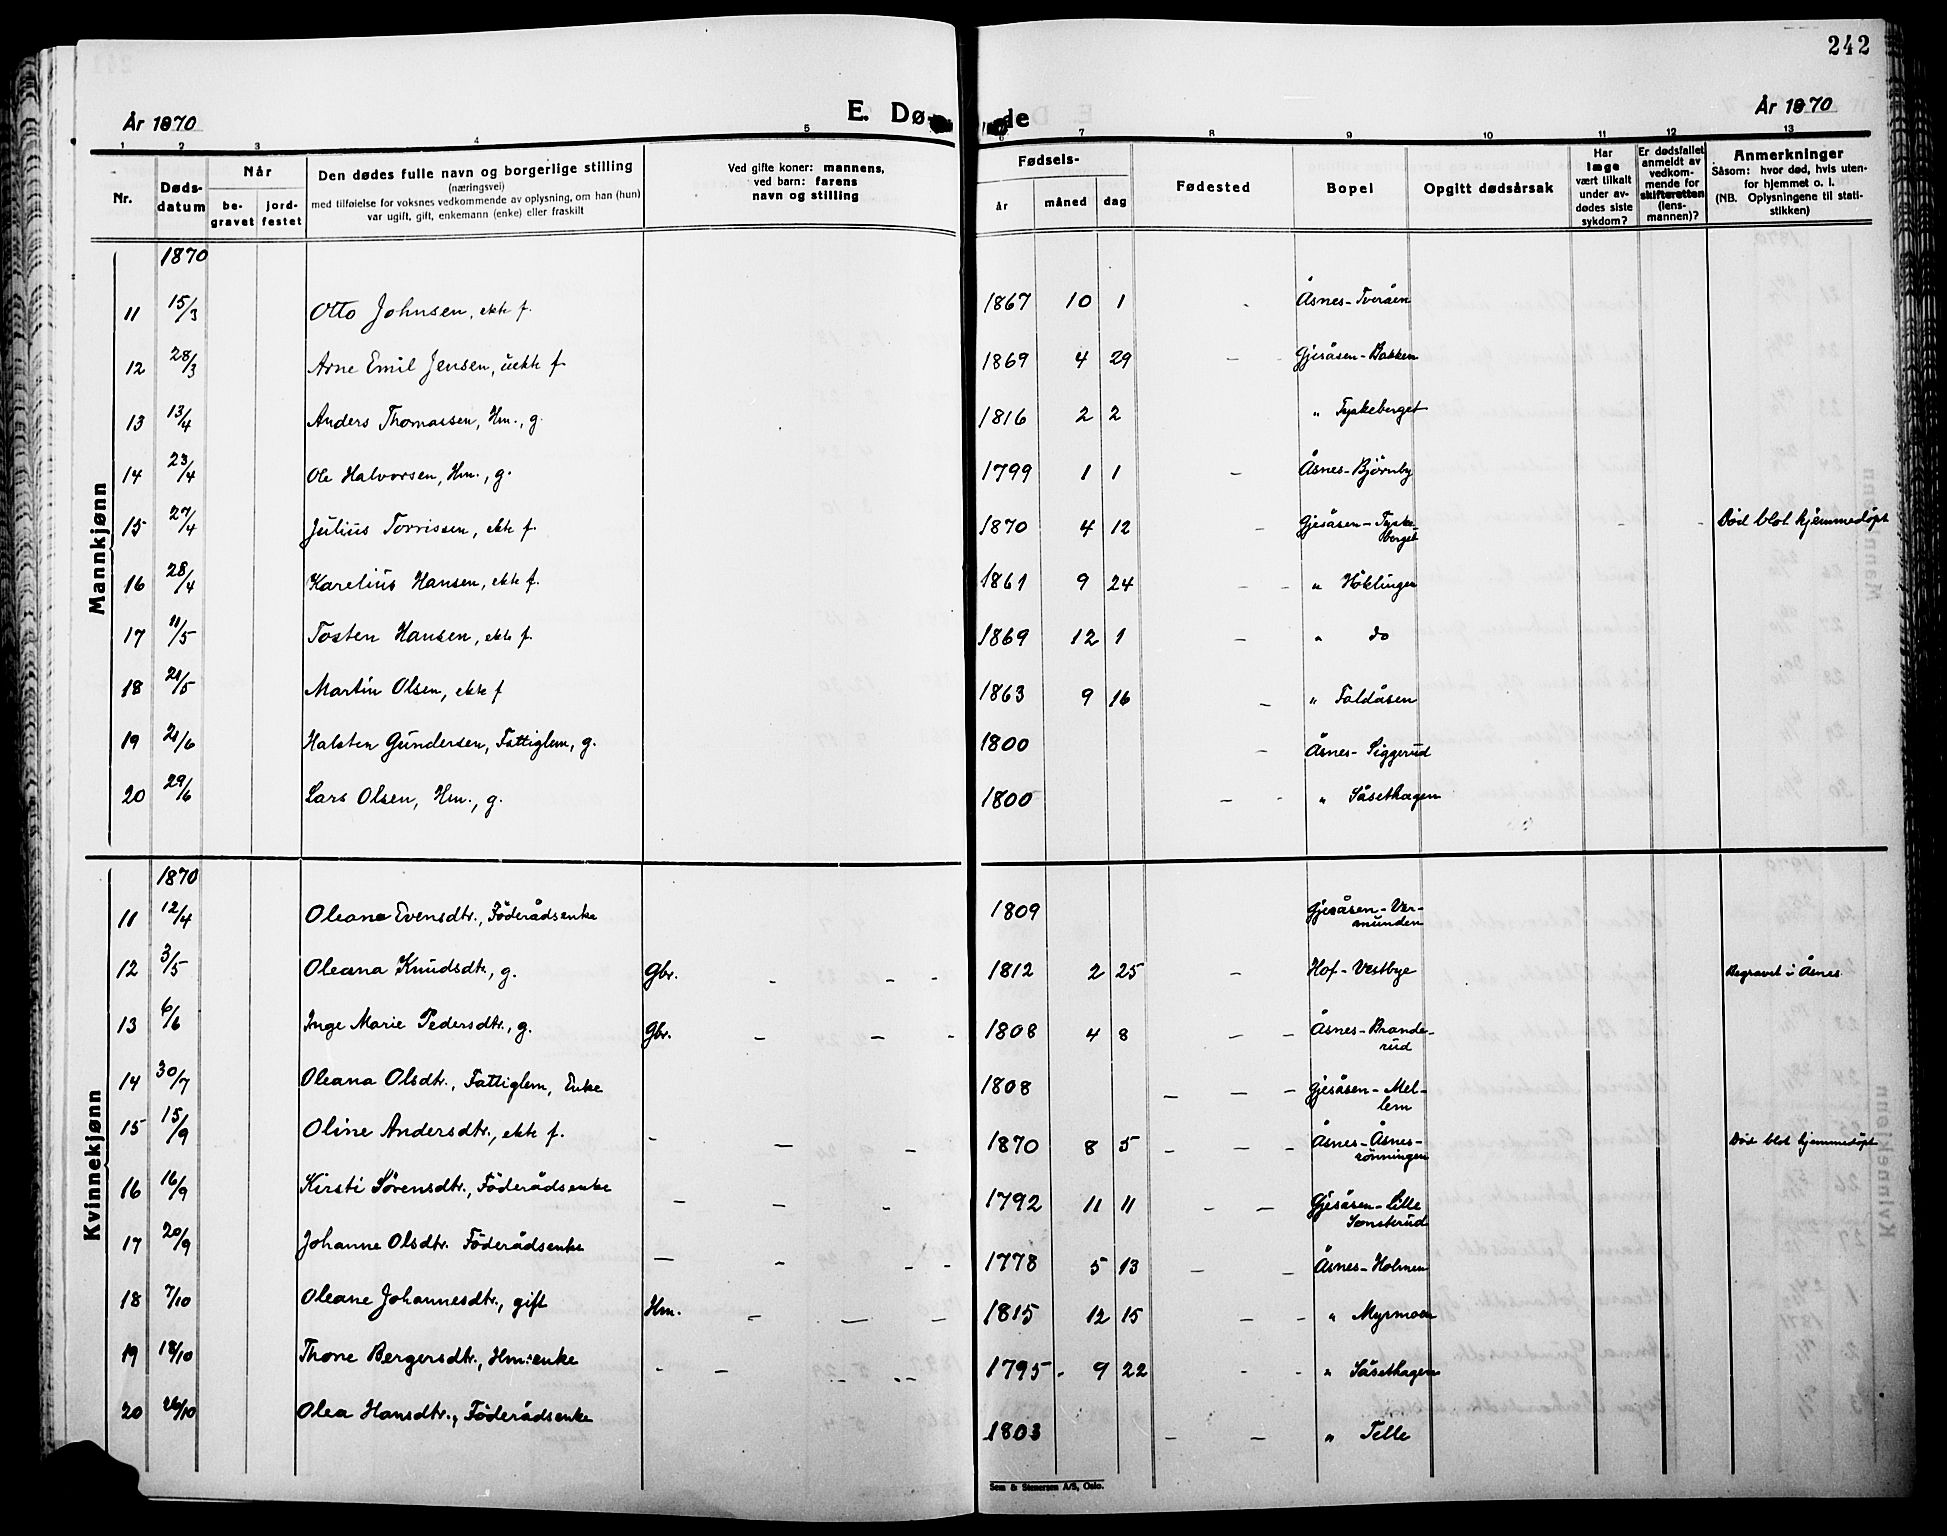 242
År 1870
E. Dø
de
År 1870
1 2 3 4 5 6 7 8 9 10 11 12 13
Nr.
Døds-
datum
Når
be-
gravet
jord-
festet
Den dødes fulle navn og borgerlige stilling
(næringsvei)
med tilføielse for voksnes vedkommende av oplysning, om han (hun)
var ugift, gift, enkemann (enke) eller fraskilt
Ved gifte koner: mannens,
ved barn: farens
navn og stilling
Fødsels-
år måned dag
Fødested
Bopel
Opgitt dødsårsak
Har
læge
vært tilkalt
under av-
dødes siste
sykdom?
Er dødsfallet
anmeldt av
vedkom-
mende for
skifteretten
(lens-
mannen)?
Anmerkninger
Såsom: hvor død, hvis uten-
for hjemmet o. l.
(NB. Oplysningene til stati-
stikken)
Mannkjønn
1870
11 15/3 Otto Johnsen, ekte f. 1867 10 1 Åsnes-Tveråen
12 28/3 Arne Emil Jensen, uekte f 1869 4 29 Gjesåsen-Bakken
13 13/4 Anders Thomassen, Hm., g. 1816 2 2 " Tyskeberget
14 23/4 Ole Halvorsen, Hm., g. 1799 1 1 Åsnes-Björnby
15 27/4 Julius Torrissen, ekte f. 1870 4 12 Gjesåsen-Tyske- Död blot hjemmedöpt
berget
16 28/4 Karelius Hansen, ekte f. 1861 9 24 " Höklingen
17 11/5 Tosten Hansen, ekte f. 1869 12 1 " do
18 21/5 Martin Olsen, ekte f 1863 9 16 " Faldåsen
19 21/6 Halsten Gundersen, Fattiglem, g. 1800 Åsnes-Siggerud
20 29/6 Lars Olsen, Hm., g. 1800 " Såsethagen
Kvinnekjønn
1870
11 12/4 Oleane Evensdtr., Föderådsenke 1809 Gjesåsen-Ver-
munden
12 3/5 Oleana Knudsdtr., g. Gbr. 1812 2 25 Hof-Vestbye Begravet i Åsnes.
13 6/6 Inge Marie Pedersdtr., g. Gbr. 1808 4 8 Åsnes-Brande-
rud
14 30/7 Oleana Olsdtr., Fattiglem, Enke 1808 Gjesåsen-Mel-
lem
15 15/9 Oline Andersdtr., ekte f. 1870 8 5 Åsnes-Åsnes- Död blot hjemmedöpt
rönningen
16 16/9 Kirsti Sörensdtr., Föderådsenke 1792 11 11 Gjesåsen-Lille
Sonsterud
17 20/9 Johanne Olsdtr. Föderådsenke 1778 5 13 Åsnes-Holmen
18 7/10 Oleane Johannesdtr., gift Hm. 1815 12 15 " Myrmoen
19 18/10 Thore Bergersdtr., Hm:enke 1795 9 22 " Såsethagen
20 26/10 Olea Hansdtr., Föderådsenke 1803 " Telle
Sem & Stenersen A/S, Oslo.